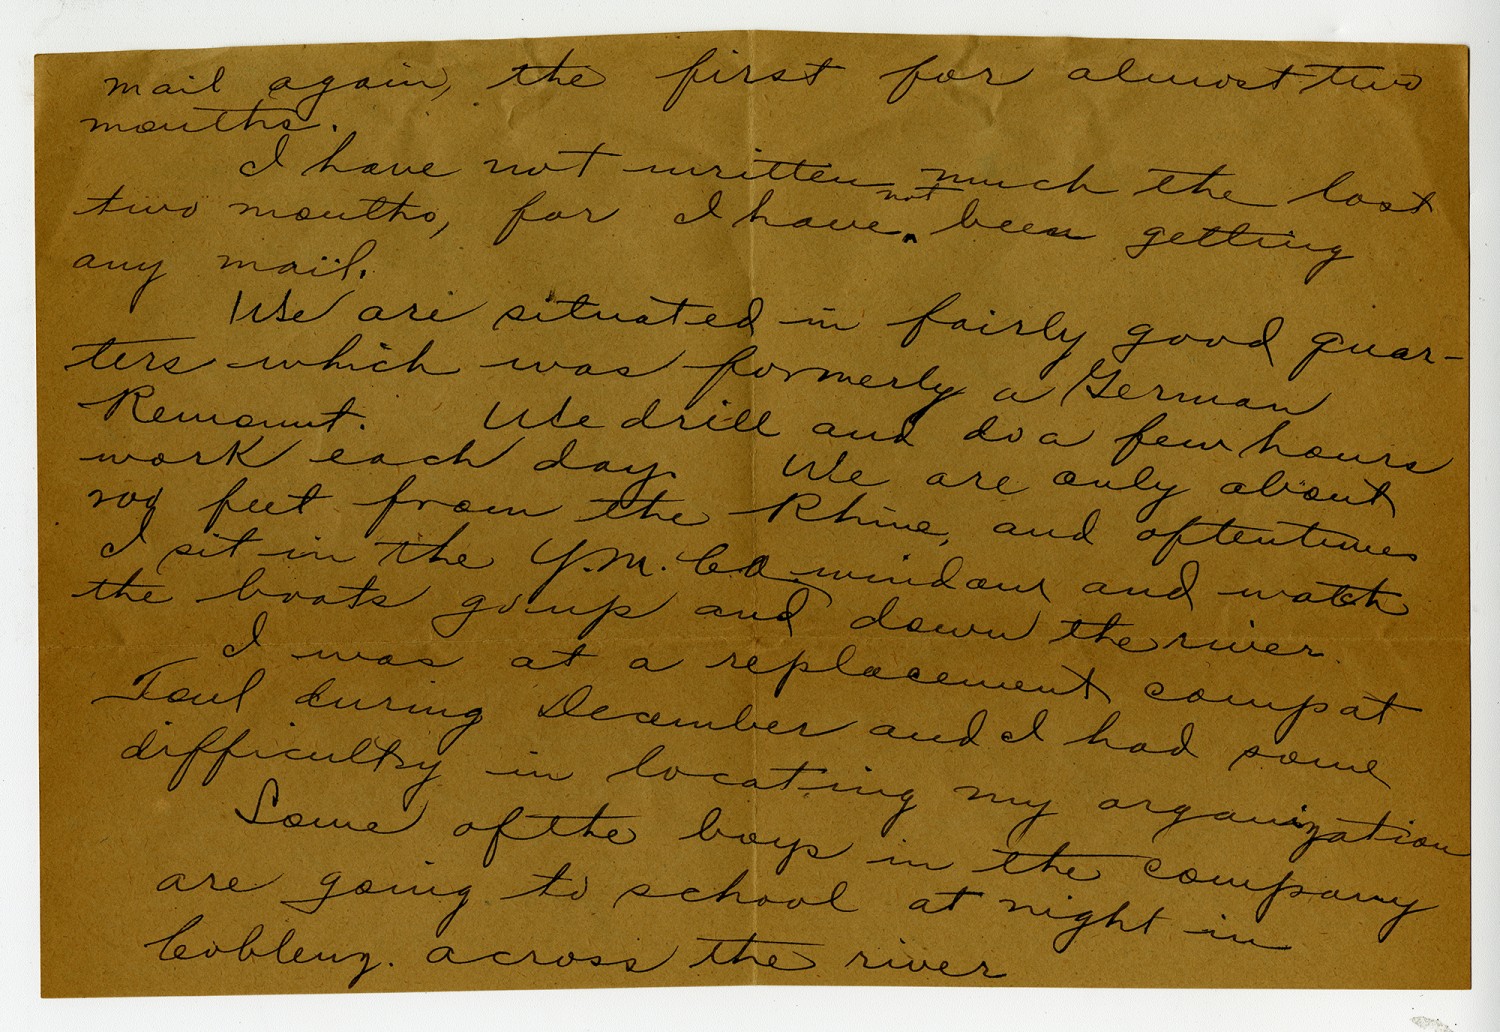 mail again, the first for almost two
months.
I have not written much the last
two months, for I have not been getting
any mail.
We are situated in fairly good quar-
ters which was formerly a German
Remount. We drill and do a few hours
work each day. We are only about
feet from the Rhine, and oftentimes
I sit in the Y.M.C.A. window and watch
the boats go up and down the river.
I was at a replacement camp at
Toul during December and I had some
difficulty in locating my organization
Some of the boys in the company
are going to school at night in
Coblenz. across the river